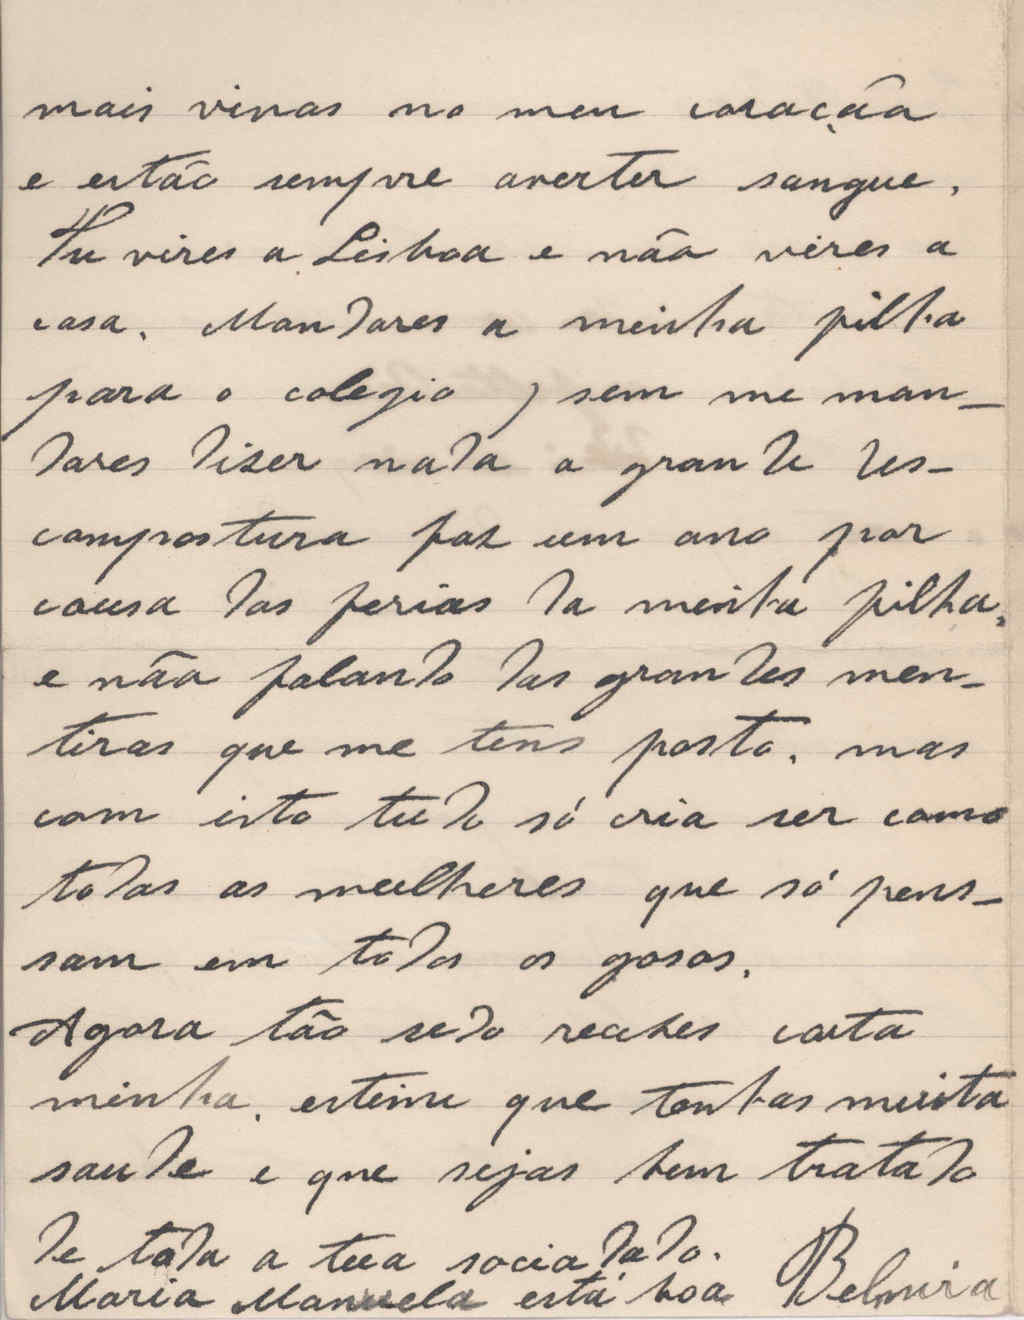 mais vivas no meu coração
e estão sempre averter sangue.
Tu vires a Lisboa e não vires a
casa. Mandares a meinha filha
para o colegio, sem me man-
dares diser nada a grande des-
compostura faz um ano por
causa das ferias da meinha filha,
e não falando das grandes men-
tiras que me tens posto. mas
com isto tudo só cria ser como
todas as mulheres que só pens-
sam em todos os gosos.
Agora tão sedo recebes carta
minha. estimu que tenhas muita
saude e que sejas bem tratado
de toda a tua sociadado.
Maria Manuela está boa Belmira